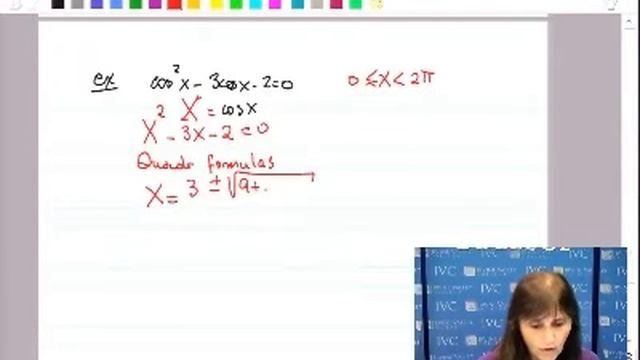 ex cos²x - 3cosx - 2 = 0 0 ≤ x < 2π
X = cosx
X² - 3X - 2 = 0
formulas
X = 3 ± √9+.
IVC IVC
IVC